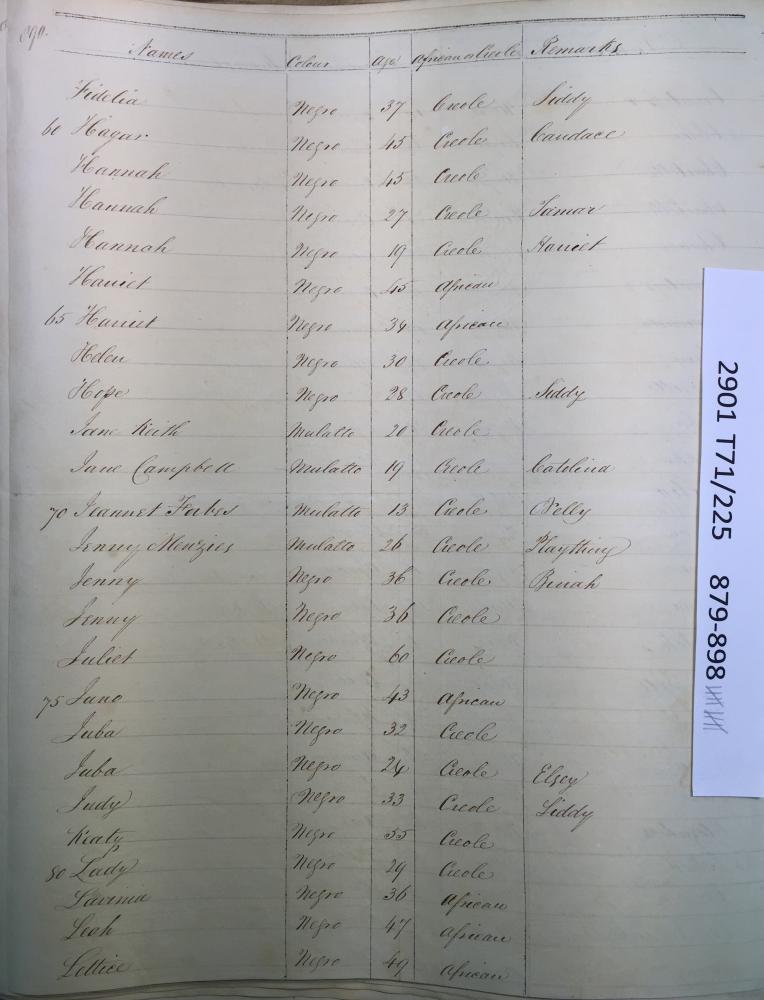 890.
Names Colour Age African or Creole Remarks
Fidelia Negro 37 Creole Siddy
60 Hagar Negro 45 Creole Candace
Hannah Negro 45 Creole
Hannah Negro 27 Creole Tamar
Hannah Negro 19 Creole Harriet
Harriet Negro 45 African
65 Harriet Negro 34 African
Helen Negro 30 Creole
Hope Negro 28 Creole Siddy
Jane Keith Mulatto 20 Creole
Jane Campbell Mulatto 19 Creole Catalina
70 Jeannet Forbes Mulatto 13 Creole Nelly
Jenny Menzies Mulatto 26 Creole Plaything
Jenny Negro 36 Creole Binah
Jenny Negro 36 Creole
Juliet Negro 60 Creole
75 Juno Negro 43 African
Juba Negro 32 Creole
Juba Negro 24 Creole Elsey
Judy Negro 33 Creole Siddy
Keaty Negro 55 Creole
80 Lady Negro 29 Creole
Lavinia Negro 36 African
Leah Negro 47 African
Lettice Negro 49 African
2901 T71/225 879-898